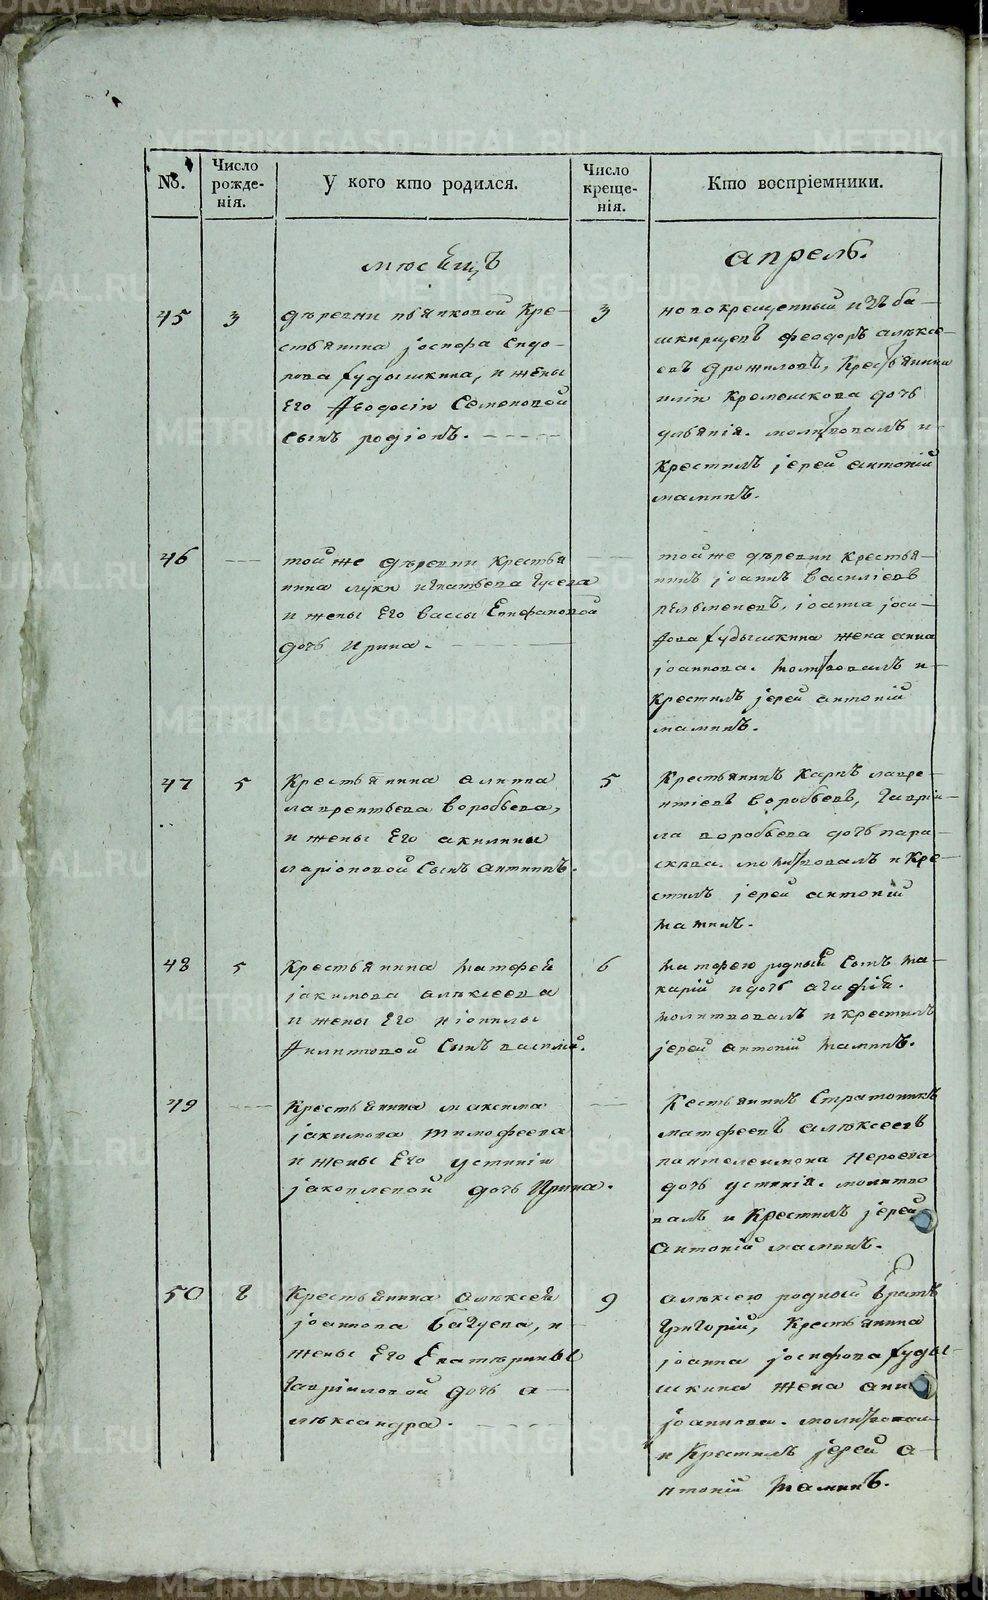 No.
Число рожде-нія.
У кого кто родился.
Число креще-нія.
Кто воспріемники.
месяцъ
апрель.
45
3
деревни Кре-
стьянина јосифа Сидо-
рова худышкина, и жены
Его Ѳеодосіи Семеновой
Сынъ родіонъ.
3
новокрещенный изъ ба-
шкирцевъ феодоръ алексе-
евъ Крестьянина
дочь
улѣянія. молитвовалъ и
Крестилъ јерей антоній
маминъ.
46
той же деревни Крестья
нина луки игнатьева Гусева
и жены Его вассы Епифановой
дочь Ирина.
той же деревни Крестья-
нинъ јоаннъ василіевъ
пельменевъ, іоанна јоси-
фова худышкина жена анна
јоаннова. молитвовалъ и
Крестилъ јерей антоній
маминъ.
47
5
Крестьянина
лаврентьева воробьева,
и жены Его акилины
ларіоновой Сынъ антипъ.
5
Крестьянинъ Карпъ лавре-
нтіевъ воробьевъ, гаврі-
ла воробьева дочь пара-
сквва. молитвовалъ и Кре-
стилъ јерей антоній
маминъ.
48
5
Крестьянина матфея
јакимова алексеева
и жены Его
филиповой Сынъ василій.
6
матфею родный Сынъ ма-
карій и дочь агафія.
молитвовалъ и Крестилъ
јерей антоній маминъ.
49
Крестьянина максима
јакимова тимофеева
и жены Его устиніи
јаковлевой дочь Ирина.
Кестьянинъ Стратоникъ
матфеевъ алексеевъ
пантелеимона
дочь устинія. молитво
валъ и Крестилъ јерей
антоній маминъ.
50
8
Крестьянина алексея
јоаннова багуева, и
жены Его Екатерины
гавріиловой дочь а-
лександра.
9
алексею родный братъ
григорій, Крестьянина
јоанна јосифова худы-
шкина жена анна
јоаннова. молитвовалъ
и Крестилъ јерей а-
нтоній маминъ.
METRIKI.GASO-URAL.RU